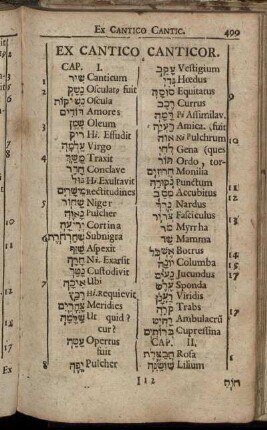 Ex Cantico Cantic. 499
EX CANTICO CANTICOR.
CAP. I.
1 שיר Canticum
2 נשק Osculatᵘ fuit
נשיקות Oscula
דודים Amores
שמן Oleum
ריק Hi. Effudit
עלמה Virgo
4 משך Traxit
חדר Conclave
גל Hi. Exultavit
מישרים Rectitudines
5 שחור Niger
נאוה Pulcher
יריעה Cortina
6 שחרחרת Subnigra
שזף Aspexit
חרה Ni. Exarsit
נטר Custodivit
7 איכה Ubi
רבץ Hi. Requievit
צהרים Meridies
שלמה Ut quid?
cur?
עטה Opertus
fuit
8 יפה Pulcher
עקב Vestigium
גדי Hœdus
9 סוסה Equitatus
רכב Currus
דמה Pi Assimilav.
רעיה Amica. (fuit
10 נאה Ni. Pulchrum
לחי Gena (que-
תור Ordo, tor-
חרוזים Monilia
11 נקודה Punctum
12 מסב Accubitus
נרד Nardus
13 צרור Fasciculus
מר Myrrha
שד Mamma
14 אשכל Botrus
15 יונה Columba
16 נעים Jucundus
ערש Sponda
רענן Viridis
17 קרה Trabs
רחיט Ambulacrū
ברותים Cupressina
CAP. II.
1 חבצלת Rosa
שושנה Lilium
Iii
חוח